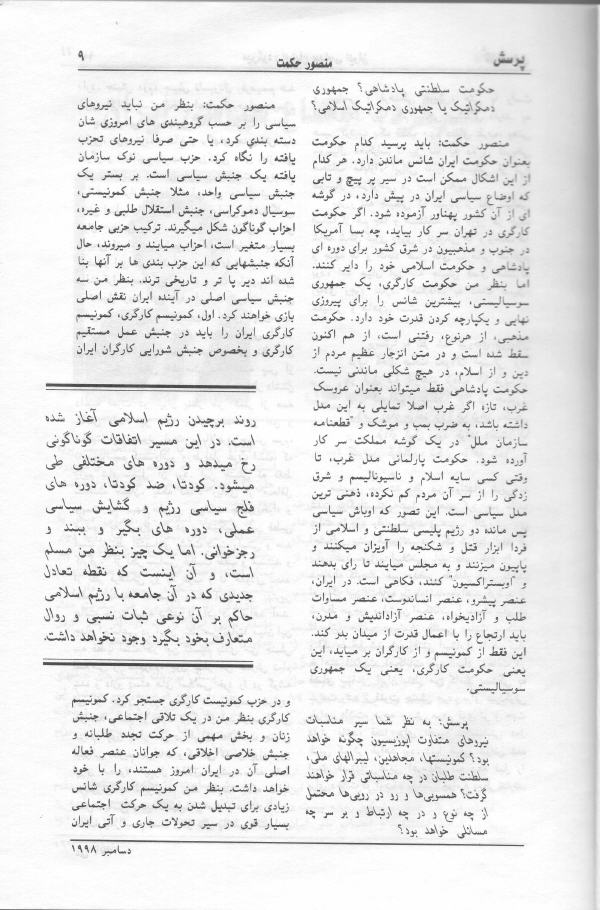 پرسش
منصور حکمت
۹
حکومت سلطنتی پادشاهی؟ جمهوری
دمکراتیک یا جمهوری دمکراتیک اسلامی؟
منصور حکمت: باید پرسید کدام حکومت
بعنوان حکومت ایران شانس ماندن دارد. هر کدام
از این اشکال ممکن است در سیر پر پیچ و تابی
که اوضاع سیاسی ایران در پیش دارد، در گوشه
ای از آن کشور پهناور آزموده شود. اگر حکومت
کارگری در تهران سر کار بیاید، چه بسا آمریکا
در جنوب و مذهبیون در شرق کشور برای دوره ای
پادشاهی و حکومت اسلامی خود را دایر کنند.
اما بنظر من حکومت کارگری، یک جمهوری
سوسیالیستی، بیشترین شانس را برای پیروزی
نهایی و یکپارچه کردن قدرت خود دارد. حکومت
مذهبی، از هرنوع، رفتنی است، از هم اکنون
سقط شده است و در متن انزجار عظیم مردم از
دین و از اسلام، در هیچ شکلی ماندنی نیست.
حکومت پادشاهی فقط میتواند بعنوان عروسک
غرب، تازه اگر غرب اصلا تمایلی به این مدل
داشته باشد، به ضرب بمب و موشک و "قطعنامه
سازمان ملل" در یک گوشه مملکت سر کار
آورده شود. حکومت پارلمانی مدل غرب، تا
وقتی کسی سایه اسلام و ناسیونالیسم و شرق
زدگی را از سر آن مردم کم نکرده، ذهنی ترین
مدل سیاسی است. این تصور که اوباش سیاسی
پس مانده دو رژیم پلیسی سلطنتی و اسلامی از
فردا ابزار قتل و شکنجه را آویزان میکنند و
پاپیون میزنند و به مجلس میایند تا رای بدهند
و "اوبستراکسیون" کنند، فکاهی است. در ایران،
عنصر پیشرو، عنصر انساندوست، عنصر مساوات
طلب و آزادیخواه، عنصر آزاداندیش و مدرن،
باید ارتجاع را با اعمال قدرت از میدان بدر کند.
این فقط از کمونیسم و از کارگران بر میاید، این
یعنی حکومت کارگری، یعنی یک جمهوری
سوسیالیستی.
پرسش: به نظر شما سیر مناسبات
نیروهای متفاوت اپوزیسیون چگونه خواهد
بود؟ کمونیستها، مجاهدین، لیبرالهای ملی،
سلطنت طلبان در چه مناسباتی قرار خواهند
گرفت؟ همسویی‌ها و رو در رویی‌ها محتمل
از چه نوع و در چه ارتباط و بر سر چه
مسائلی خواهد بود؟
منصور حکمت: بنظر من نباید نیروهای
سیاسی را بر حسب گروهبندی های امروزی شان
دسته بندی کرد، یا حتی صرفا نیروهای تحزب
یافته را نگاه کرد. حزب سیاسی نوک سازمان
یافته یک جنبش سیاسی است. بر بستر یک
جنبش سیاسی واحد، مثلا جنبش کمونیستی،
سوسیال دموکراسی، جنبش استقلال طلبی و غیره،
احزاب گوناگون شکل میگیرند. ترکیب حزبی جامعه
بسیار متغیر است، احزاب میایند و میروند، حال
آنکه جنبشهایی که این حزب بندی ها بر آنها بنا
شده اند دیر پا تر و تاریخی ترند. بنظر من سه
جنبش سیاسی اصلی در آینده ایران نقش اصلی
بازی خواهند کرد. اول، کمونیسم کارگری، کمونیسم
کارگری ایران را باید در جنبش عمل مستقیم
کارگری و بخصوص جنبش شورایی کارگران ایران
روند برچیدن رژیم اسلامی آغاز شده
است. در این مسیر اتفاقات گوناگونی
رخ میدهد و دوره های مختلفی طی
میشود. کودتا، ضد کودتا، دوره های
فلج سیاسی رژیم و گشایش سیاسی
عملی، دوره های بگیر و ببند و
رجزخوانی. اما یک چیز بنظر من مسلم
است، و آن اینست که نقطه تعادل
جدیدی که در آن جامعه با رژیم اسلامی
حاکم بر آن نوعی ثبات نسبی و روال
متعارف بخود بگیرد وجود نخواهد داشت.
و در حزب کمونیست کارگری جستجو کرد. کمونیسم
کارگری بنظر من در یک تلاقی اجتماعی، جنبش
زنان و بخش مهمی از حرکت تجدد طلبانه و
جنبش خلاصی اخلاقی، که جوانان عنصر فعاله
اصلی آن در ایران امروز هستند، را با خود
خواهد داشت. بنظر من کمونیسم کارگری شانس
زیادی برای تبدیل شدن به یک حرکت اجتماعی
بسیار قوی در سیر تحولات جاری و آتی ایران
دسامبر ۱۹۹۸